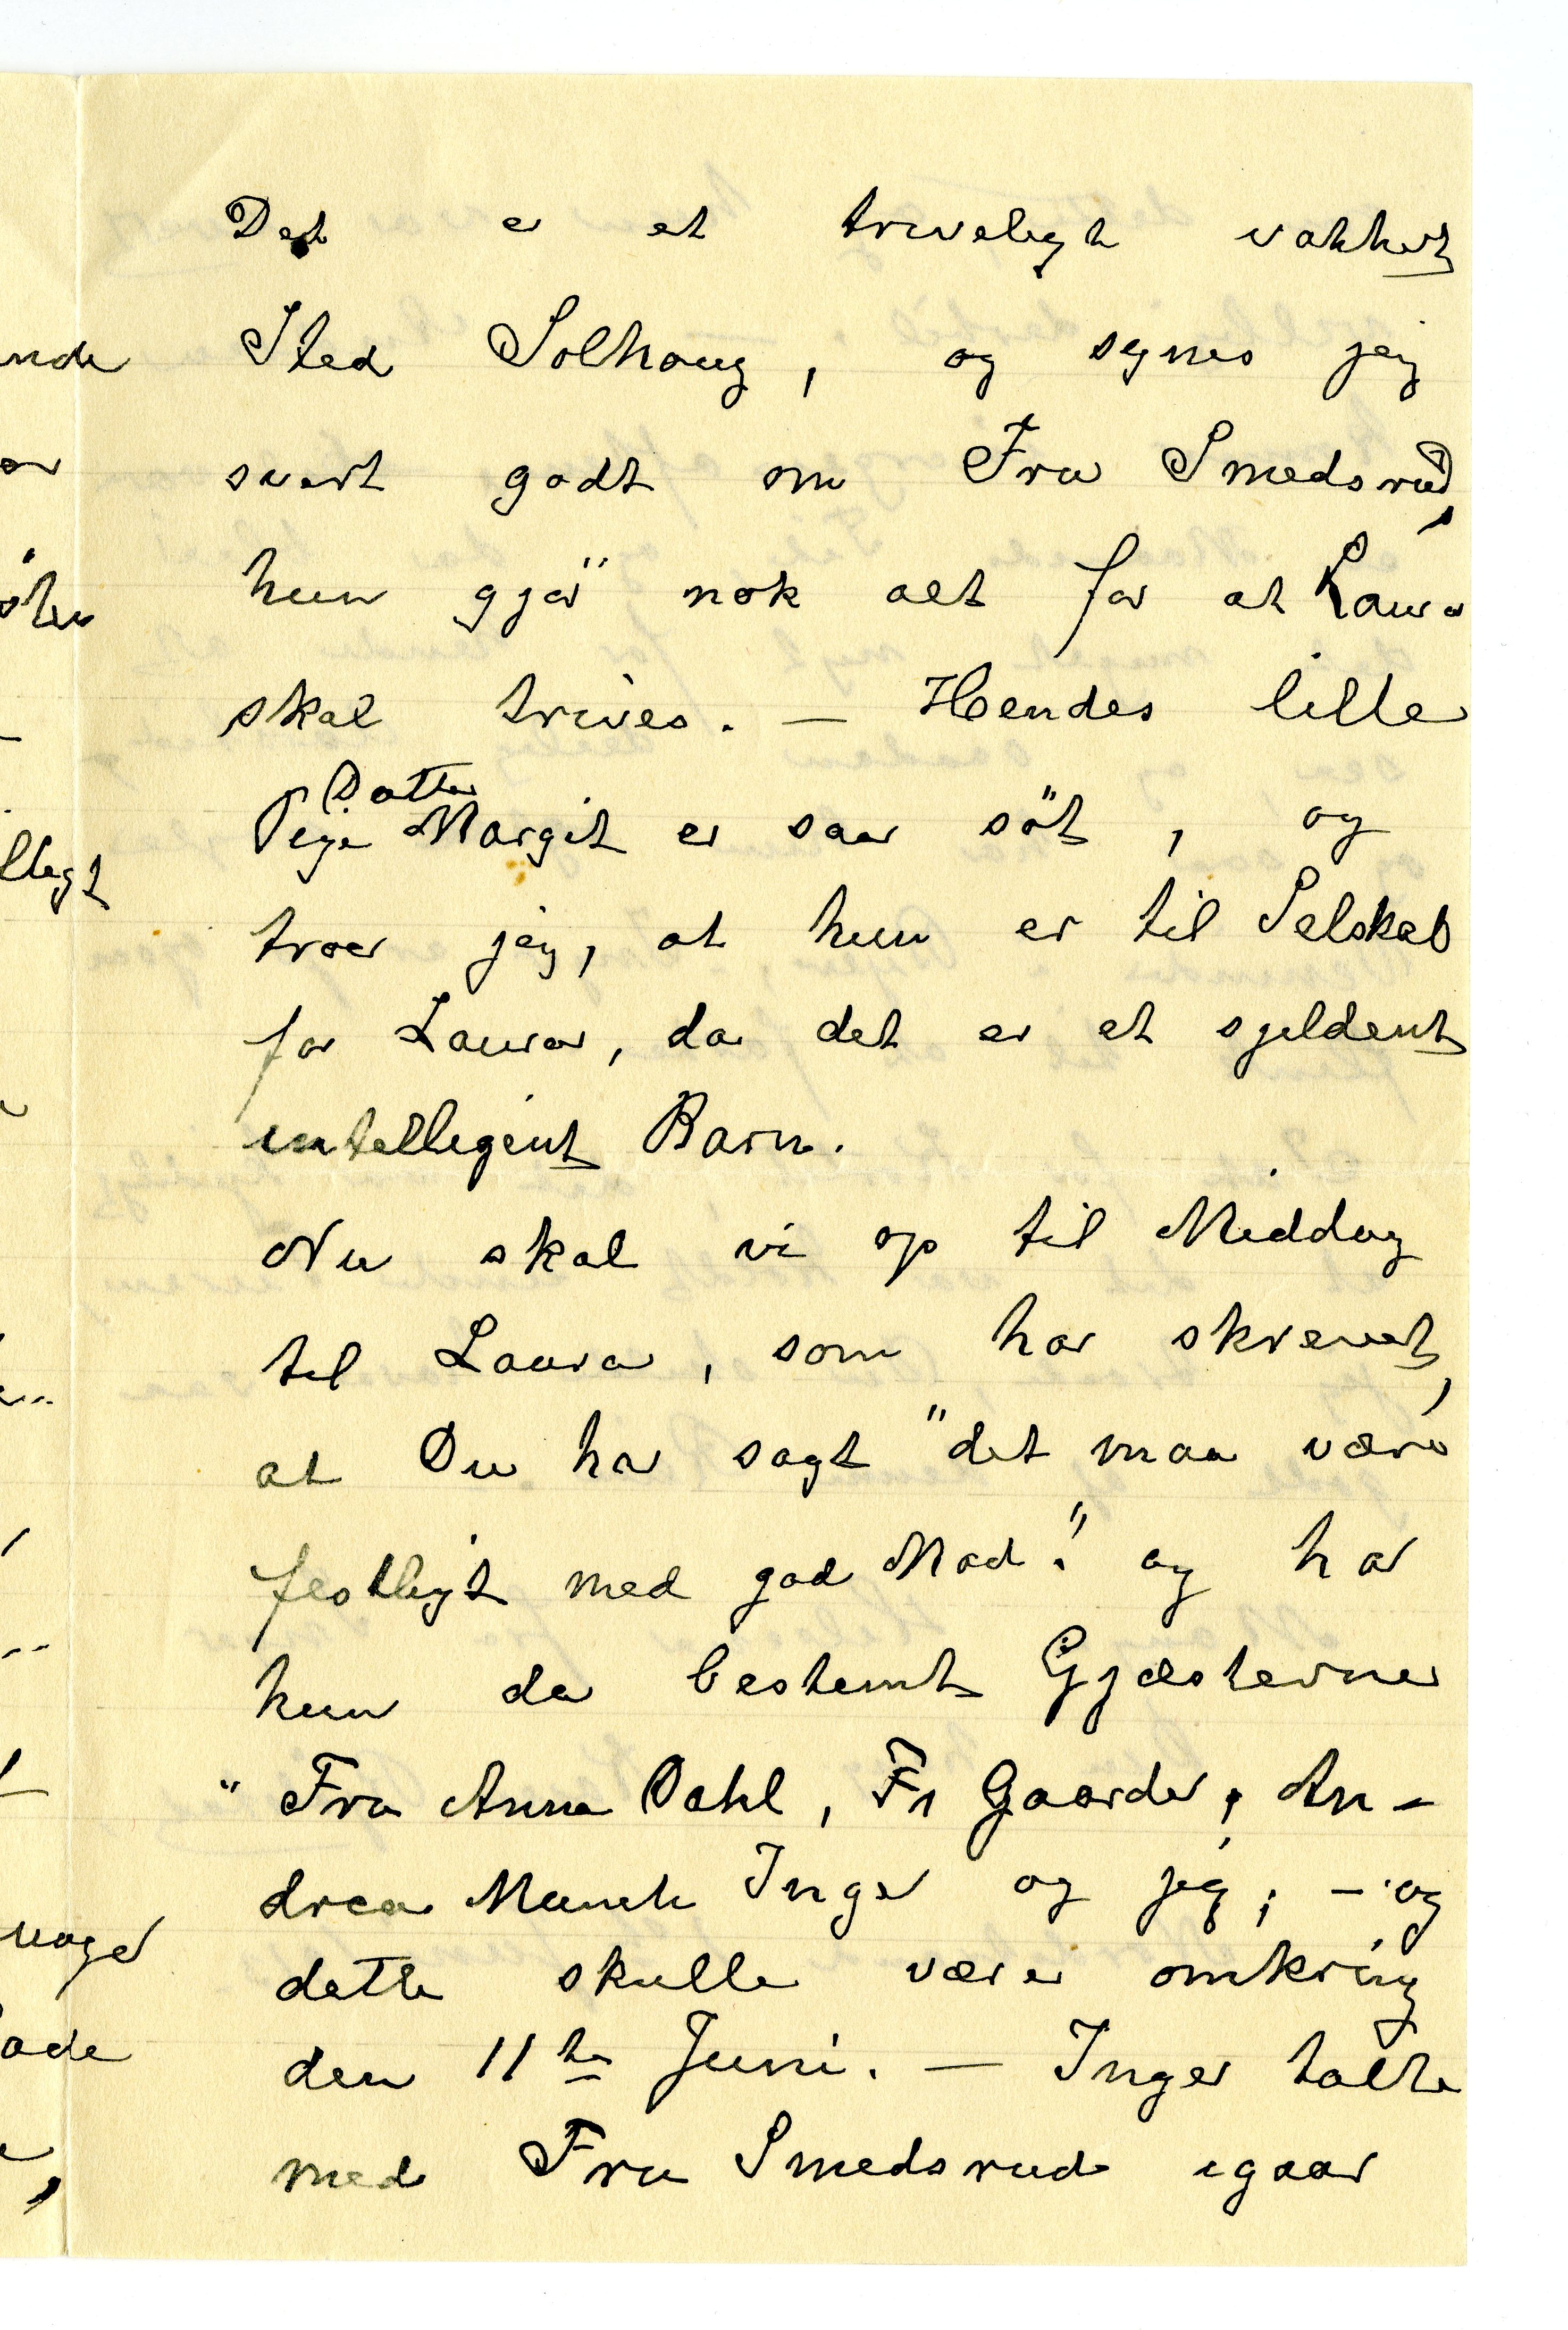 Det er et triveligt vakkert
Sted Solhaug, og synes jeg
svært godt om Fru Smedsrud,
hun gjör nok alt for at Laura
skal trives. — Hendes lille
Datter
Pige Margit er saa söt, og
troer jeg, at hun er til Selskab
for Laura, da det er et sjeldent
intelligent Barn.
Nu skal vi op til Middag
til Laura, som har skrevet,
at Du har sagt "det maa være
festligt med god Mad!" og har
hun da bestemt Gjæsterne
"Fru Anna Dahl, Fr Gaarder, An-
drea Munch Inger og jeg; — og
dette skulle være omkring
den 11te Juni. — Inger talte
med Fru Smedsrud igaar